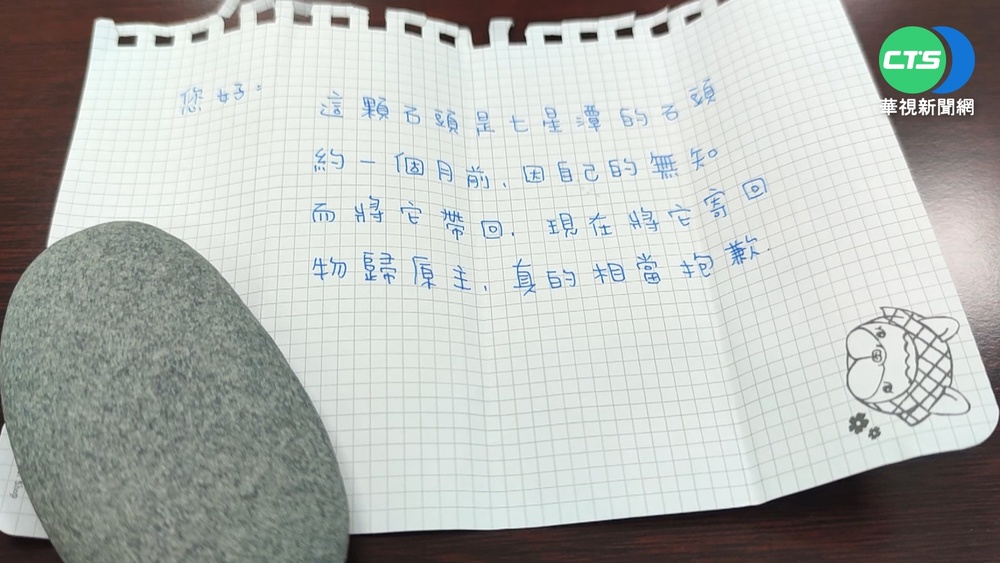 CTS
華視新聞網
您好:
這顆石頭是七星潭的石頭
約一個月前,因自己的無知
而將它帶回,現在將它寄回
物歸原主,真的相當抱歉